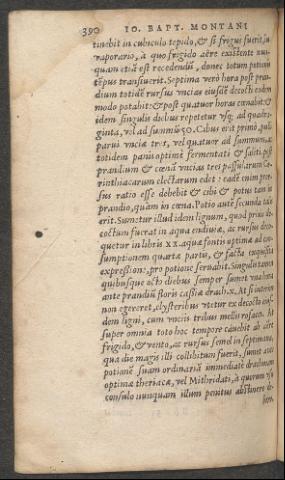 390 IO. BAPT. MONTANI
tinebit in cubiculo tepido, & si frigus fuerit, in
vaporario, à quo frigido aëre existente nun-
quam etiã est recedendũ, donec totum potiõis
tẽpus transiuerit. Septima verò hora post pran-
dium totidẽ rursus vncias eiusdẽ decocti eodem
modo potabit: & post quatuor horas cœnabit: &
idem singulis diebus repetetur vsq; ad quadra-
ginta, vel ad summũ 50. Cibus erit primò, pulli
parui vncia tres, vel quatuor ad summum, &
totidem panis optimè fermentati & saliti. post
prandium & cœnã vncias tres passularum Co-
rinthiacarum electarum edet: eadẽ enim pror-
sus ratio esse debebit & cibi & potus tam in
prandio, quàm in cœna. Potio autẽ secunda talis
erit. Sumetur illud idem lignum, quod prius de-
coctum fuerat in aqua endiuiæ, ac rursus deco-
quetur in libris XX. aquæ fontis optimæ ad con-
sumptionem quartæ partis, & facta
expressione, pro potione seruabit. Singulis tamen
quibusque octo diebus semper sumet vna hora
ante prandiũ floris cassiæ drach. X. At si interim
non egereret, clysteribus vtetur ex decocto eius-
dem ligni, cum vnciis tribus mellis rosacei. At
super omnia toto hoc tempore cauebit ab aëre
frigido, & vento, ac rursus semel in septimana,
qua die magis illi collibitum fuerit, sumet ante
potionẽ suam ordinariã immediate drachmam
optimæ theriacæ, vel Mithridati, à quorum vsu
consulo nunquam illum penitus abstinere de-
bere.